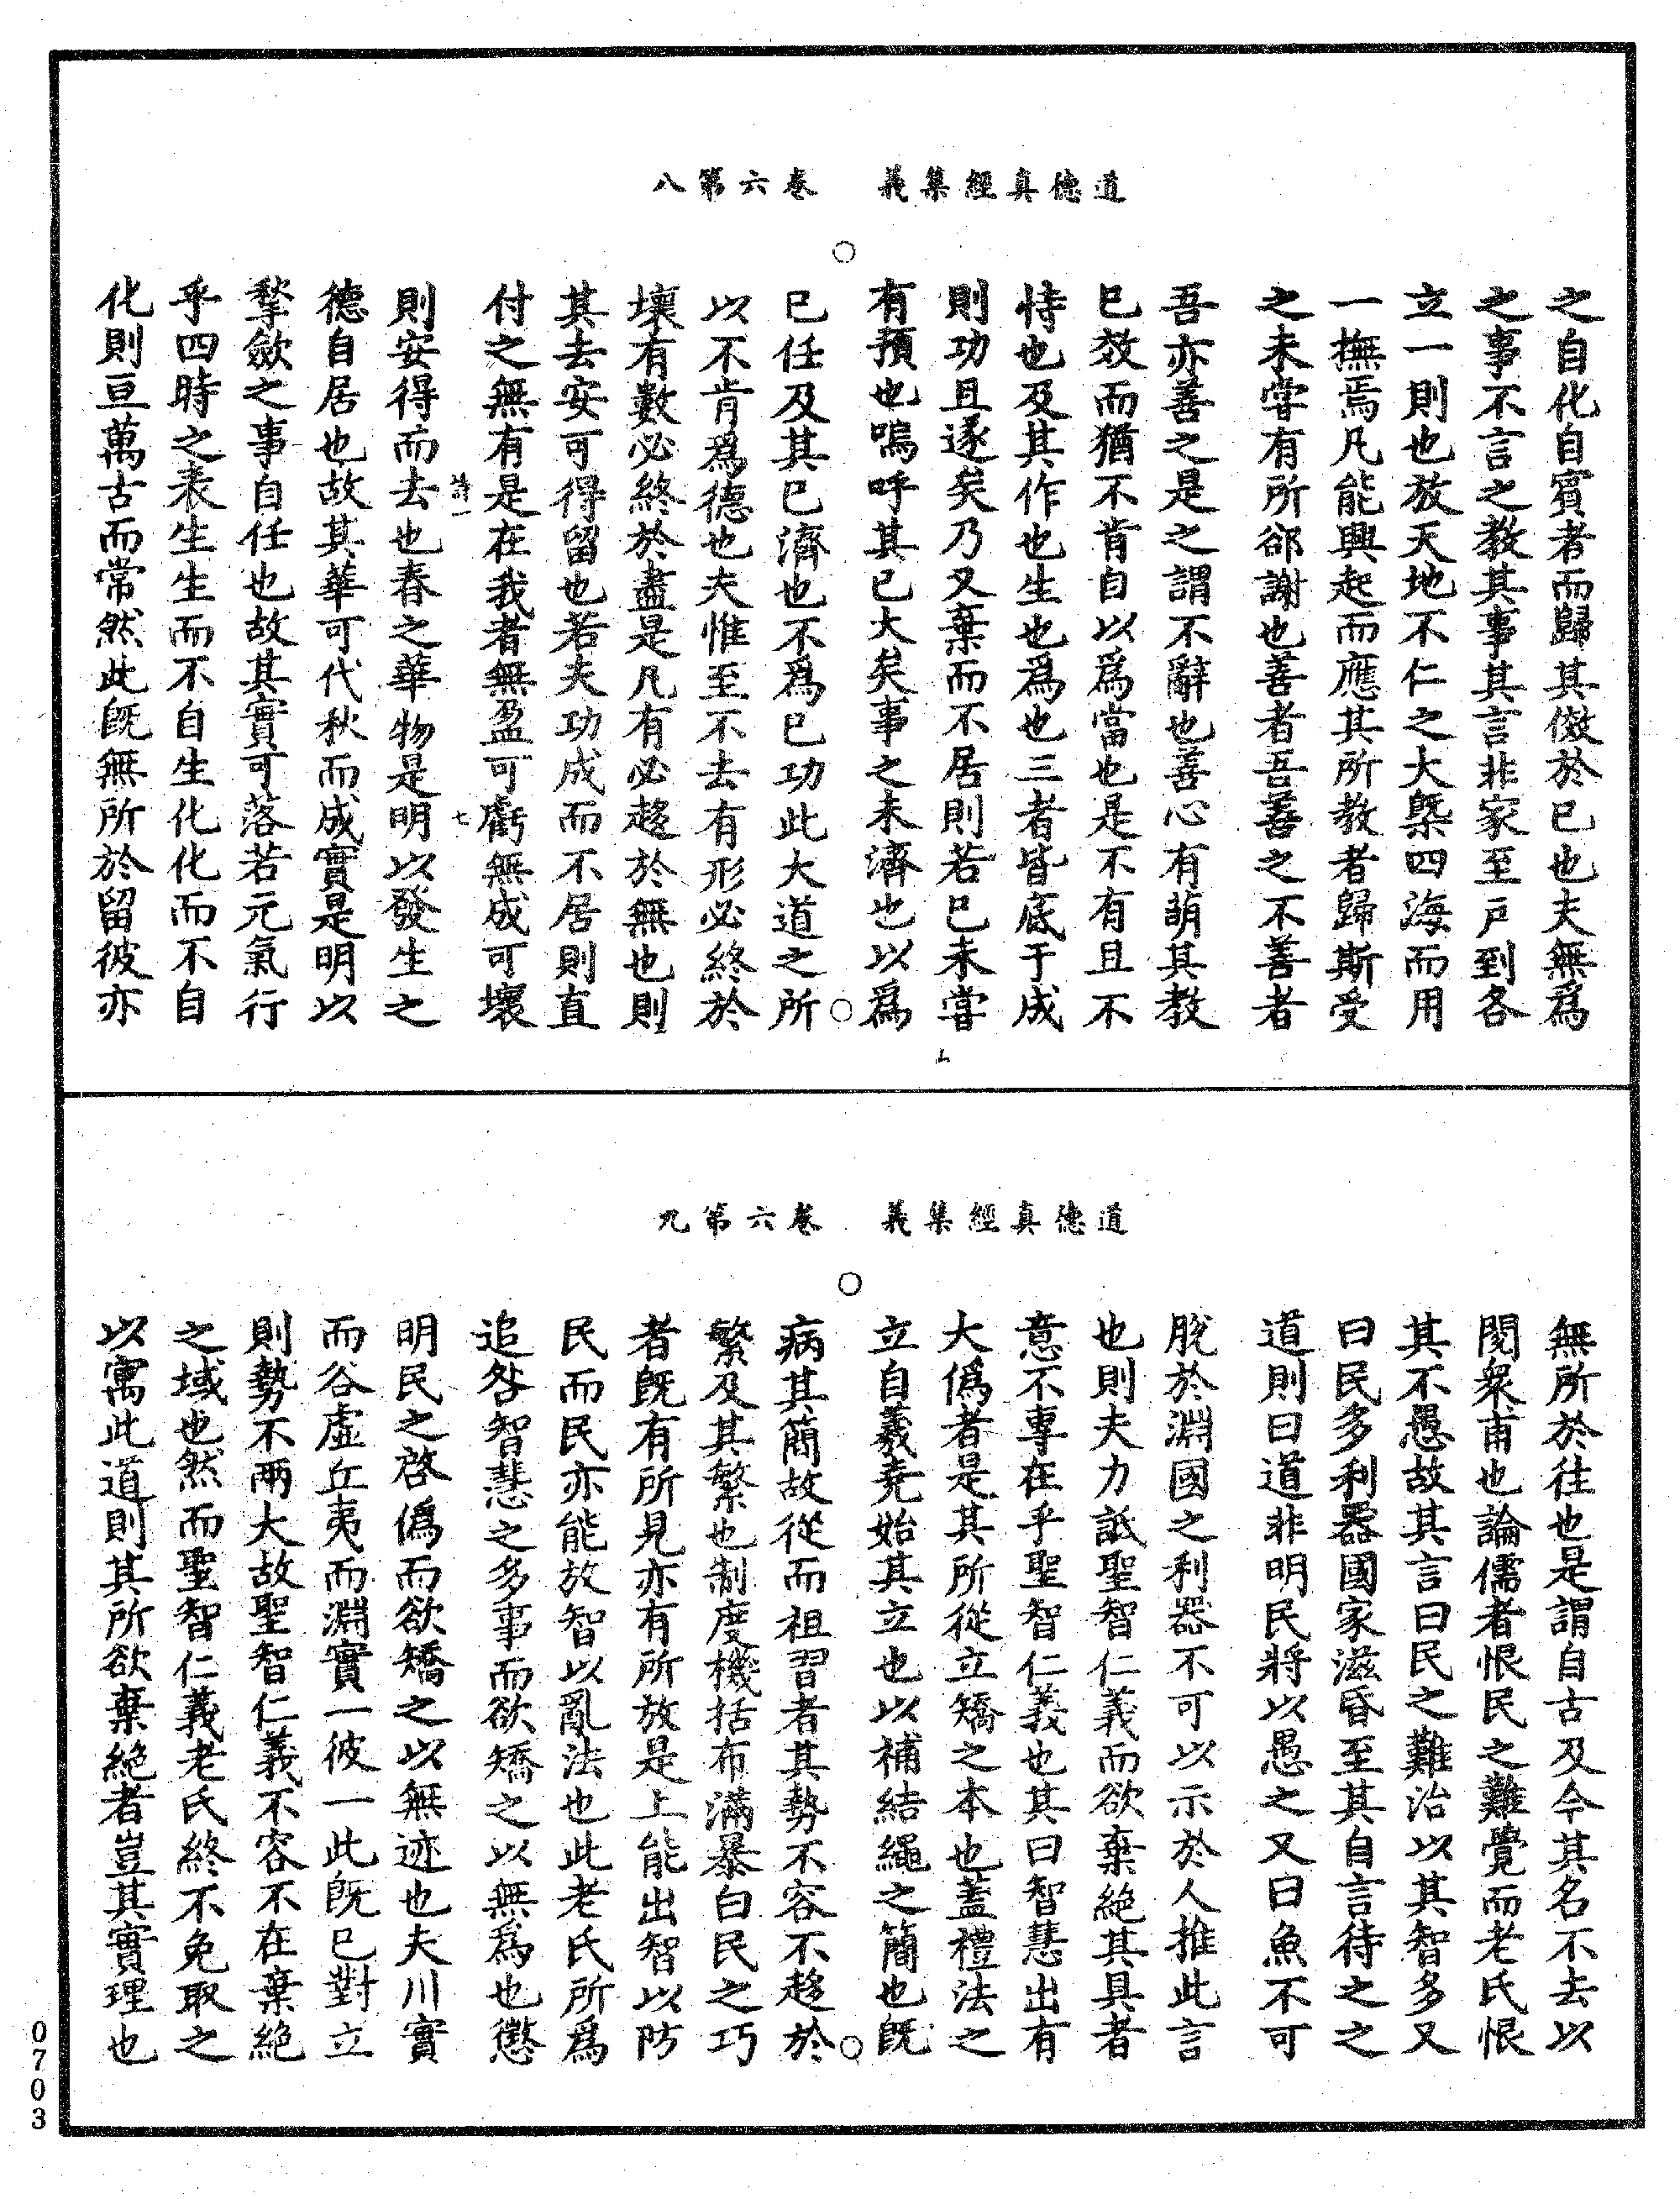 道德真經集義　卷六第八
之自化自賓者而歸其倣於已也夫無爲
之事不言之教其事其言非家至戸到各
立一則也放天地不仁之大槩四海而用
一撫焉凡能興起而應其所教者歸斯受
之未嘗有所郤謝也善者吾善之不善者
吾亦善之是之謂不辭也善心有萌其教
已效而猶不肯自以爲當也是不有且不
恃也及其作也生也爲也三者皆底于成
則功且遂矣乃又棄而不居則若已未嘗
有預也嗚呼其已大矣事之未濟也以爲
已任及其已濟也不爲已功此大道之所
以不肯爲德也夫惟至不去有形必終於
壞有數必終於盡是凡有必趍於無也則
其去安可得留也若夫功成而不居則直
付之無有是在我者無盈可虧無成可壞
則安得而去也春之華物是明以發生之
德自居也故其華可代秋而成實是明以
揫斂之事自任也故其實可落若元氣行
乎四時之表生生而不自生化化而不自
化則亘萬古而常然此旣無所於留彼亦
道德真經集義　卷六第九
無所於往也是謂自古及今其名不去以
閱衆甫也論儒者恨民之難覺而老氏恨
其不愚故其言曰民之難治以其智多又
曰民多利器國家滋昏至其自言待之之
道則曰道非明民將以愚之又曰魚不可
脫於淵國之利器不可以示於人推此言
也則夫力詆聖智仁義而欲棄絕其具者
意不專在乎聖智仁義也其曰智慧出有
大僞者是其所從立矯之本也蓋禮法之
立自羲堯始其立也以補結繩之簡也旣
病其簡故從而祖習者其勢不容不趍於
繁及其繁也制度機括布滿暴白民之巧
者旣有所見亦有所放是上能出智以防
民而民亦能放智以亂法也此老氏所爲
追咎智慧之多事而欲矯之以無爲也懲
明民之啓僞而欲矯之以無迹也夫川實
而谷虛丘夷而淵實一彼一此旣已對立
則勢不兩大故聖智仁義不容不在棄絕
之域也然而聖智仁義老氏終不免取之
以寓此道則其所欲棄絕者豈其實理也
0703